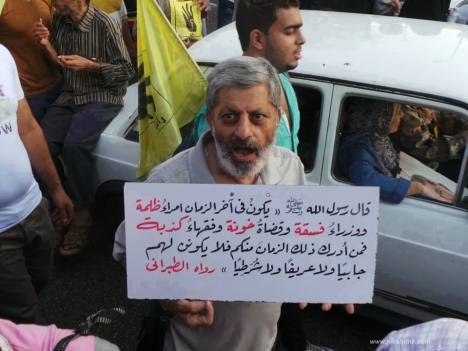 قال رسول الله ﷺ « يكون في آخر الزمان امراء ظلمة
ووزراء فسقة وقضاة خونة وفقهاء كذبة
فمن أدرك ذلك الزمان منكم فلا يكونن لهم
جابيا ولا عريفا ولا شرطيا » رواه الطبراني